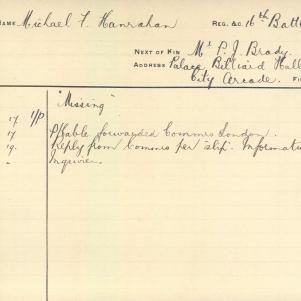 NAME Michael F. Hanrahan REG. &C. 16th Batt
NEXT OF KIN Mr P. J. Brady.
ADDRESS Palace Billiard Hall
City Arcade. Fi
"Missing"
17. I/P
17 P/Cable forwarded Commrs London.
19. Reply from Commrs per slip. Informati
" Inquiries.